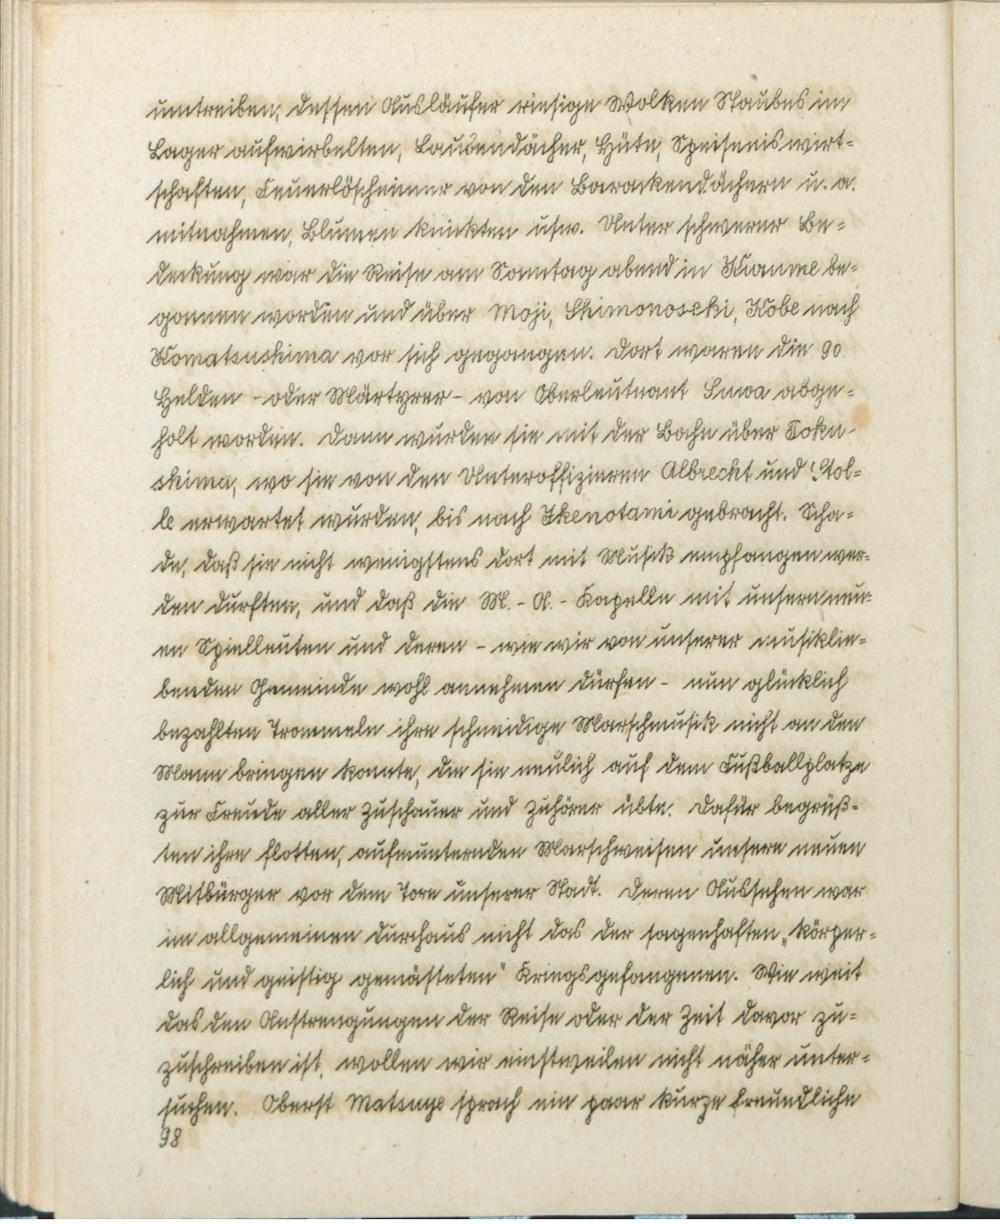 umtreiben, dessen Ausläufer riesige Wolken Staubes im
Lager aufwirbelten, Laubendächer, Hüte, Speiseeiswirt-
schaften, Feuerlöscheimer von den Barackendächern u. a.
mitnahmen, Blumen knickten usw. Unter schwerer Be-
deckung war die Reise am Sonntag abend in Kurume be-
gonnen worden und über Moji, Shimonoseki, Kobe nach
Komatsushima vor sich gegangen. Dort waren die 90
Helden - oder Märtyrer - von Oberleutnant Suwa abge-
holt worden. Dann wurden sie mit der Bahn über Toku-
shima, wo sie von den Unteroffizieren Albrecht und Stol-
le erwartet wurden, bis nach Ikenotani gebracht. Scha-
de, daß sie nicht wenigstens dort mit Musik empfangen wer-
den durften, und daß die M.-A.-Kapelle mit unsern neu-
en Spielleuten und deren - wie wir von unserer musiklie-
benden Gemeinde wohl annehmen dürfen - nun glücklich
bezahlten Trommeln ihre schneidige Marschmusik nicht an den
Mann bringen konnte, die sie neulich auf dem Fußballplatze
zur Freude aller Zuschauer und Zuhörer übte. Dafür begrüß-
ten ihre flotten, aufmunternden Marschweisen unsere neuen
Mitbürger vor dem Tore unserer Stadt. Deren Aussehen war
im allgemeinen durchaus nicht das der sagenhaften „körper-
lich und geistig gemästeten" Kriegsgefangenen. Wie weit
das den Anstrengungen der Reise oder der Zeit davor zu-
zuschreiben ist, wollen wir einstweilen nicht näher unter-
suchen. Oberst Matsuye sprach ein paar kurze freundliche
98